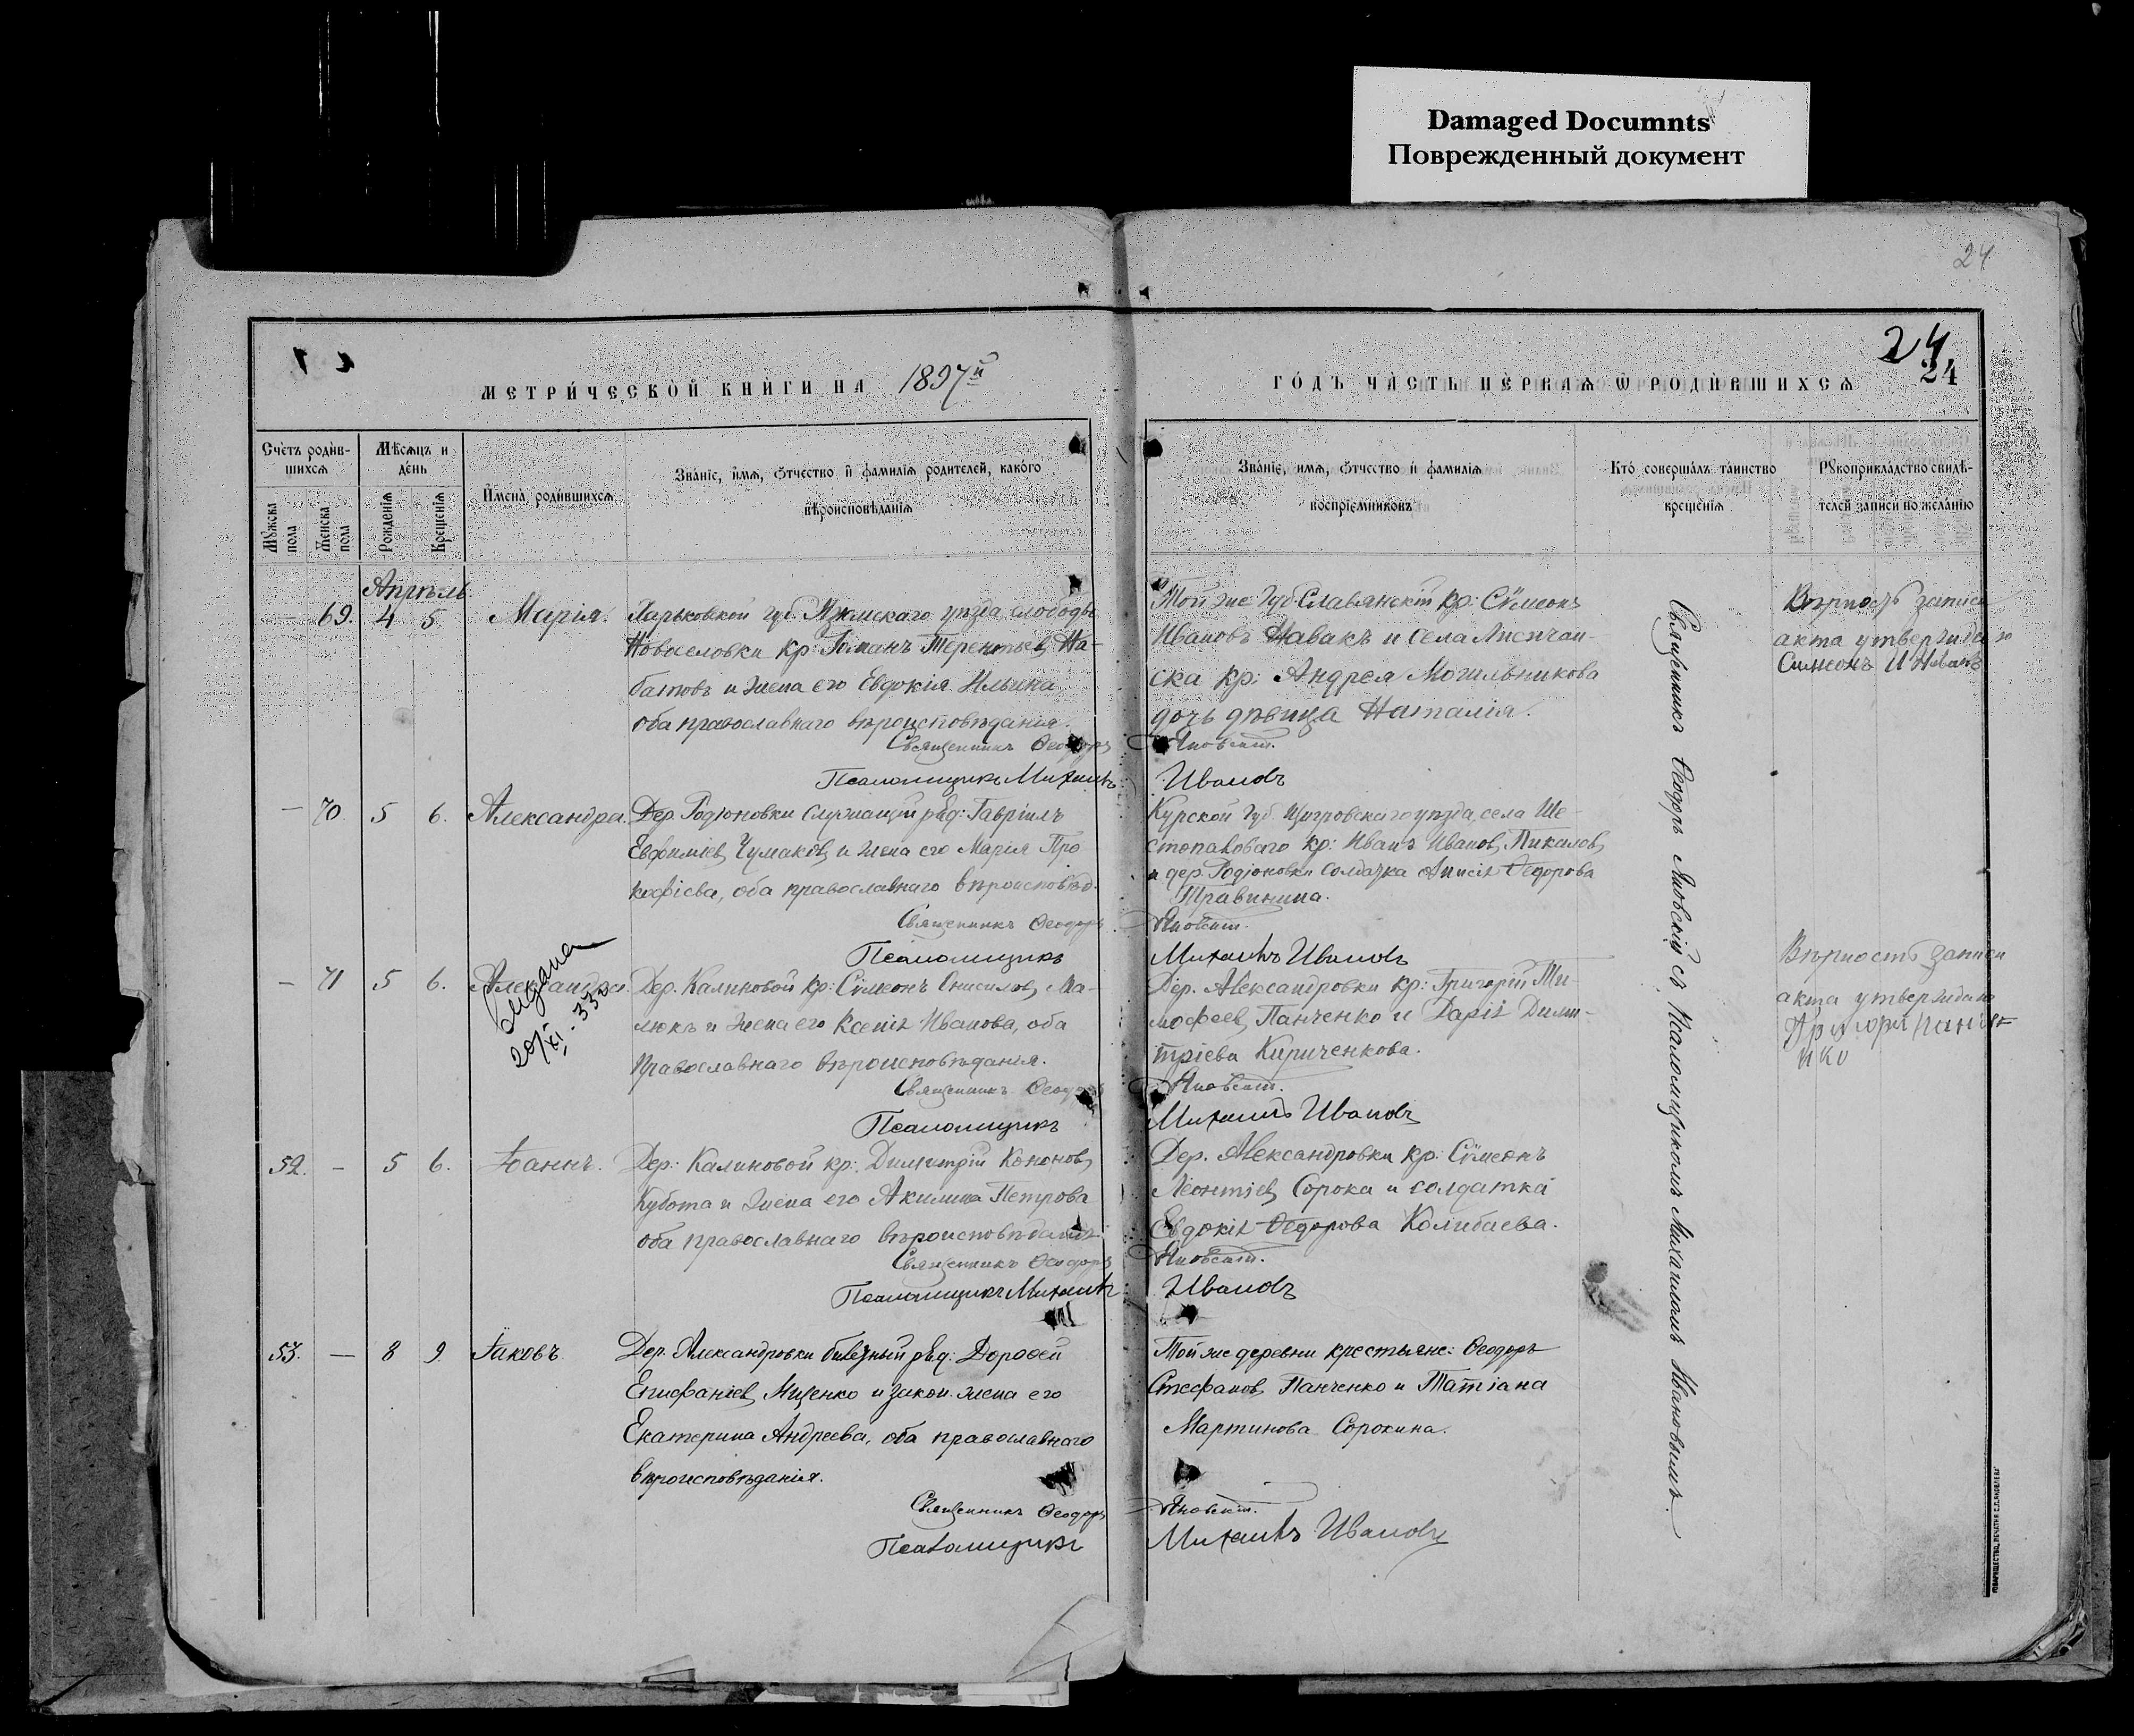 Damaged Documnts
Поврежденный документ
24
24
24
МЕТРИ́ЧЕСКОЙ КНИ́ГИ НА 1897й
ГО́ДЪ ЧА́СТЬ ПЕ́РВАЯ Ѡ РОДИ́ВШИХСЯ
Сче́тъ роди́в-
шихся
Мѣ́сяцъ и
де́нь
Имена̀ роди́вшихся
Зва́нїе, и҆́мя, ѻ҆́тчество и҆ фами́лїя роди́телей, какого
вѣроисповѣ́данїя
Му́жска
пола
Же́нска
пола
Рожде́нїя
Креще́нїя
Зва́нїе, и҆́мя, ѻ҆́тчество и҆ фами́лїя
воспрїе́мниковъ
Кто̀ соверша́лъ та́инство
креще́нїя
Рꙋкоприкла́дство свидѣ́-
телей за́писи по жела́нїю
Апрѣль
— 69. 4 5. Марія.
Харьковской губ. Изюмскаго уѣзда, слободы
Новоселовки кр: Романъ Терентьевъ На-
батовъ и жена его Евдокія Ильина,
оба православнаго вѣроисповѣданія.
Священникъ Ѳеодоръ
Псаломщикъ Михаилъ
Той же Губ. Славянскій кр: Сѵмеонъ
Ивановъ Навакъ и села Лисичан-
ска кр: Андрея Могильникова
дочь дѣвица Наталія.
Яновскій.
Ивановъ
Вѣрность записи
акта утверждаю
Симеонъ И Навакъ
— 70. 5 6. Александра.
Дер. Родіоновки служащій ряд: Гавріилъ
Евфиміевъ Чумаковъ и жена его Марія Про
кофіева, оба православнаго вѣроисповѣд.
Священникъ Ѳеодоръ
Псаломщикъ
Курской Губ. Щигровскаго уѣзда, села Ше-
стопаловаго кр: Иванъ Ивановъ Пикаловъ
и дер. Родіоновки солдатка Анисія Ѳедорова
Травинина.
Яновскій.
Михаилъ Ивановъ
— 71 5 6. Александра.
20/XI-33
Дер. Калиновой кр: Сѵмеонъ Онисимовъ Ма-
люкъ и жена его Ксенія Иванова, оба
православнаго вѣроисповѣданія.
Священникъ Ѳеодоръ
Псаломщикъ
Дер. Александровки кр: Григорій Ти-
мофеевъ Панченко и Дарія Дими-
тріева Кириченкова.
Яновскій.
Михаилъ Ивановъ
Вѣрность записи
акта утверждаю
Григорій Панче
нко
52. — 5 6. Іоаннъ.
Дер: Калиновой кр: Димитрій Кононовъ
Кубота и жена его Акилина Петрова
оба православнаго вѣроисповѣданія.
Священникъ Ѳеодоръ
Псаломщикъ Михаилъ
Дер. Александровки кр: Сѵмеонъ
Леонтіевъ Сорока и солдатка
Евдокія Ѳедорова Колибаева.
Яновскій.
Ивановъ
53. — 8 9. Іаковъ.
Дер. Александровки билетный ряд: Дороѳей
Епифаніевъ Мищенко и закон. жена его
Екатерина Андреева, оба православнаго
вѣроисповѣданія.
Священникъ Ѳеодоръ
Псаломщикъ
Той же деревни крестьяне: Ѳеодоръ
Стефановъ Панченко и Татіана
Мартинова Сорокина.
Яновскій.
Михаилъ Ивановъ
Священникъ Ѳеодоръ Яновскій съ Псаломщикомъ Михаиломъ Ивановымъ.